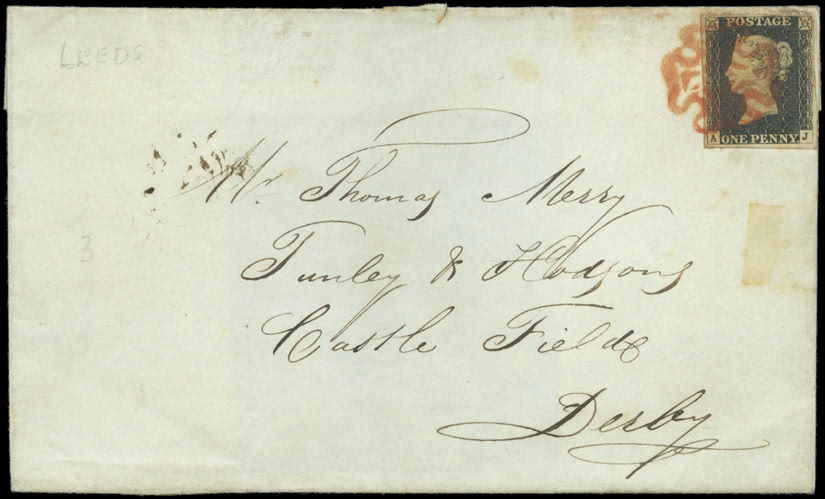 LEEDS
POSTAGE
A ONE PENNY J
Mr. Thomas Merry
Tunley & Hodsons
Castle Fields
Derby
3